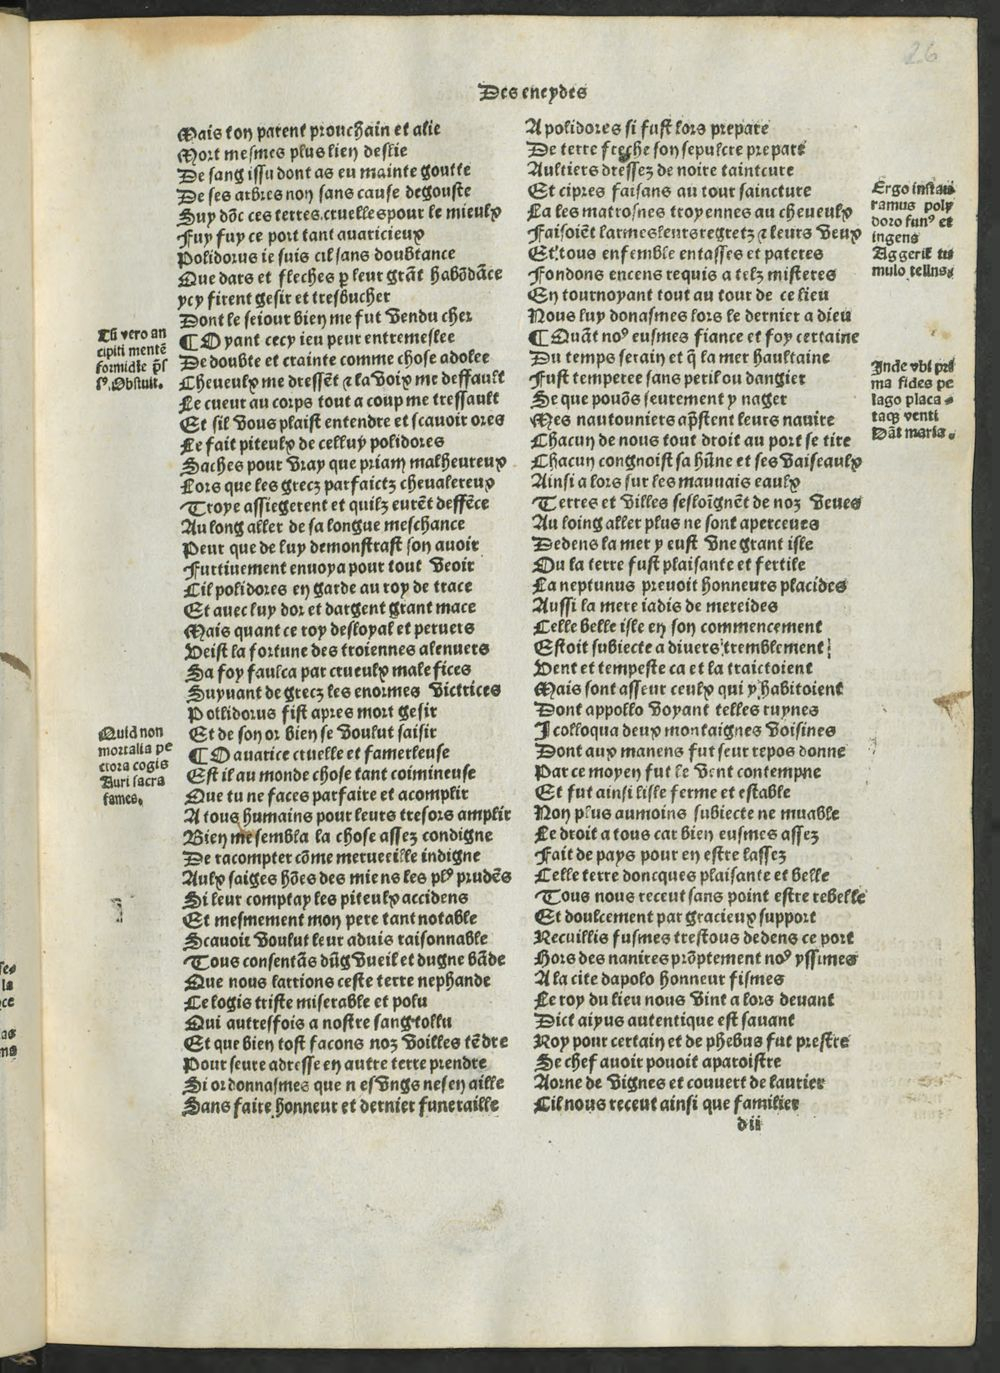 26
Des eneydes
Mais ton parent prouchain et alie
Mort mesmes plus lien deslie
De sang issu dont as eu mainte goutte
De ses arbres non sans cause degouste
Fuy dõc ces terres cruelles pour le mieulx
Fuy fuy ce port tant auaricieux
Polidorus ie suis cil sans doubtance
Que dars et fleches p leur grãt habõdãce
ycy firent gesir et tresbucher
Dont le seiour bien me fut vendu cher
Tũ vero an
cipiti mentẽ
formidie p̃s
s⁹. Obstuit.
¶ Oyant cecy ieu peur entremeslee
De doubte et crainte comme chose adolee
Cheueulx me dressẽt ⁊ la voix me deffault
Le cueur au corps tout a coup me tressault
Et sil vous plaist entendre et scauoir ores
Le fait piteulx de celluy polidores
Saches pour vray que priam malheureux
Lors que les grecz parfaictz cheualereux
Troye assiegerent et quilz eurẽt deffẽce
Au long aller de sa longue meschance
Peur que de luy demonstrast son auoir
Furtiuement enuoya pour tout veoir
Cil polidores en garde au roy de trace
Et auec luy dor et dargent grant mace
Mais quant ce roy desloyal et peruers
Veist la fortune des troiennes alenuers
Sa foy faulca par crueulx malefices
Suyuant de grecz les enormes victrices
Pollidorus fist apres mort gesir
Et de son or bien se voulut saisir
Quid non
mortalia pe
ctora cogis
Auri sacra
fames.
¶ O auarice cruelle et famerleuse
Est il au monde chose tant coimineuse
Que tu ne faces parfaire et acomplir
A tous humains pour leurs tresors amplir
Bien me sembla la chose assez condigne
De racompter cõme merueeille indigne
Aulx saiges hões des miens les pl⁹ prudẽs
Si leur comptay les piteulx accidens
Et mesmement mon pere tant notable
Scauoir voulut leur aduis raisonnable
Tous consentãs dũg vueil et dugne bãde
Que nous larrions ceste terre nephande
Le logis triste miserable et polu
Qui autresfois a nostre sang tollu
Et que bien tost facons noz voilles tẽdre
Pour seure adresse en autre terre prendre
Si ordonnasmes que nesvngs nesen aille
Sans faire honneur et dernier funeraille
A polidores si fust lors prepare
De terre freche son sepulcre prepare
Aultiers dressez de noire taincture
Et cipres faisans au tour saincture
Ergo instau
ramus poly
doro fun⁹ et
ingens
Aggerit tu
mulo tellus.
La les matrosnes troyennes au cheueulx
Faisoiẽt larmes leurs regretz ⁊ leurs veux
Et tous ensemble entasses et pateres
Fondons encens requis a telz misteres
En tournoyant tout au tour de ce lieu
Nous luy donasmes lors le dernier a dieu
¶ Quãt no⁹ eusmes fiance et foy certaine
Du temps serain et q̃ la mer haultaine
Inde vbi pri
ma fides pe
lago placa-
taq; venti
Dãt maria.
Fust temperee sans peril ou dangier
Se que pouõs seurement y nager
Mes nautouniers ap̃stent leurs nauire
Chacun de nous tout droit au port se tire
Chacun congnoist sa hũne et ses vaiseaulx
Ainsi a lors sur les mauuais eaulx
Terres et villes sesloĩgnẽt de noz veues
Au loing aller plus ne sont aperceues
Dedens la mer y eust vne grant isle
Ou la terre fust plaisante et fertile
La neptunus preuoit honneurs placides
Aussi la mere iadis de nereides
Celle belle isle en son commencement
Estoit subiecte a diuers tremblement
Vent et tempeste ca et la traictoient
Mais sont asseur ceulx qui y habitoient
Dont appollo voyant telles ruynes
Icolloqua deux montaignes voisines
Dont aux manens fut seur repos donne
Par ce moyen fut le vent contempne
Et fut ainsi lisle ferme et estable
Non plus aumoins subiecte ne muable
Le droit a tous car bien eusmes assez
Fait de pays pour en estre lassez
Celle terre doncques plaisante et belle
Tous nous receut sans point estre rebelle
Et doulcement par gracieux support
Recuillis fusmes trestous dedens ce port
Hors des nanires prõptement no⁹ yssimes
A la cite dapolo honneur fismes
Le roy du lieu nous vint a lors deuant
Dict aiyus autentique est sauant
Roy pour certain et de phebus fut prestre
Se chef auoir pouoit aparoistre
Aorne de vignes et couuert de laurier
Cil nous receut ainsi que familier
dii